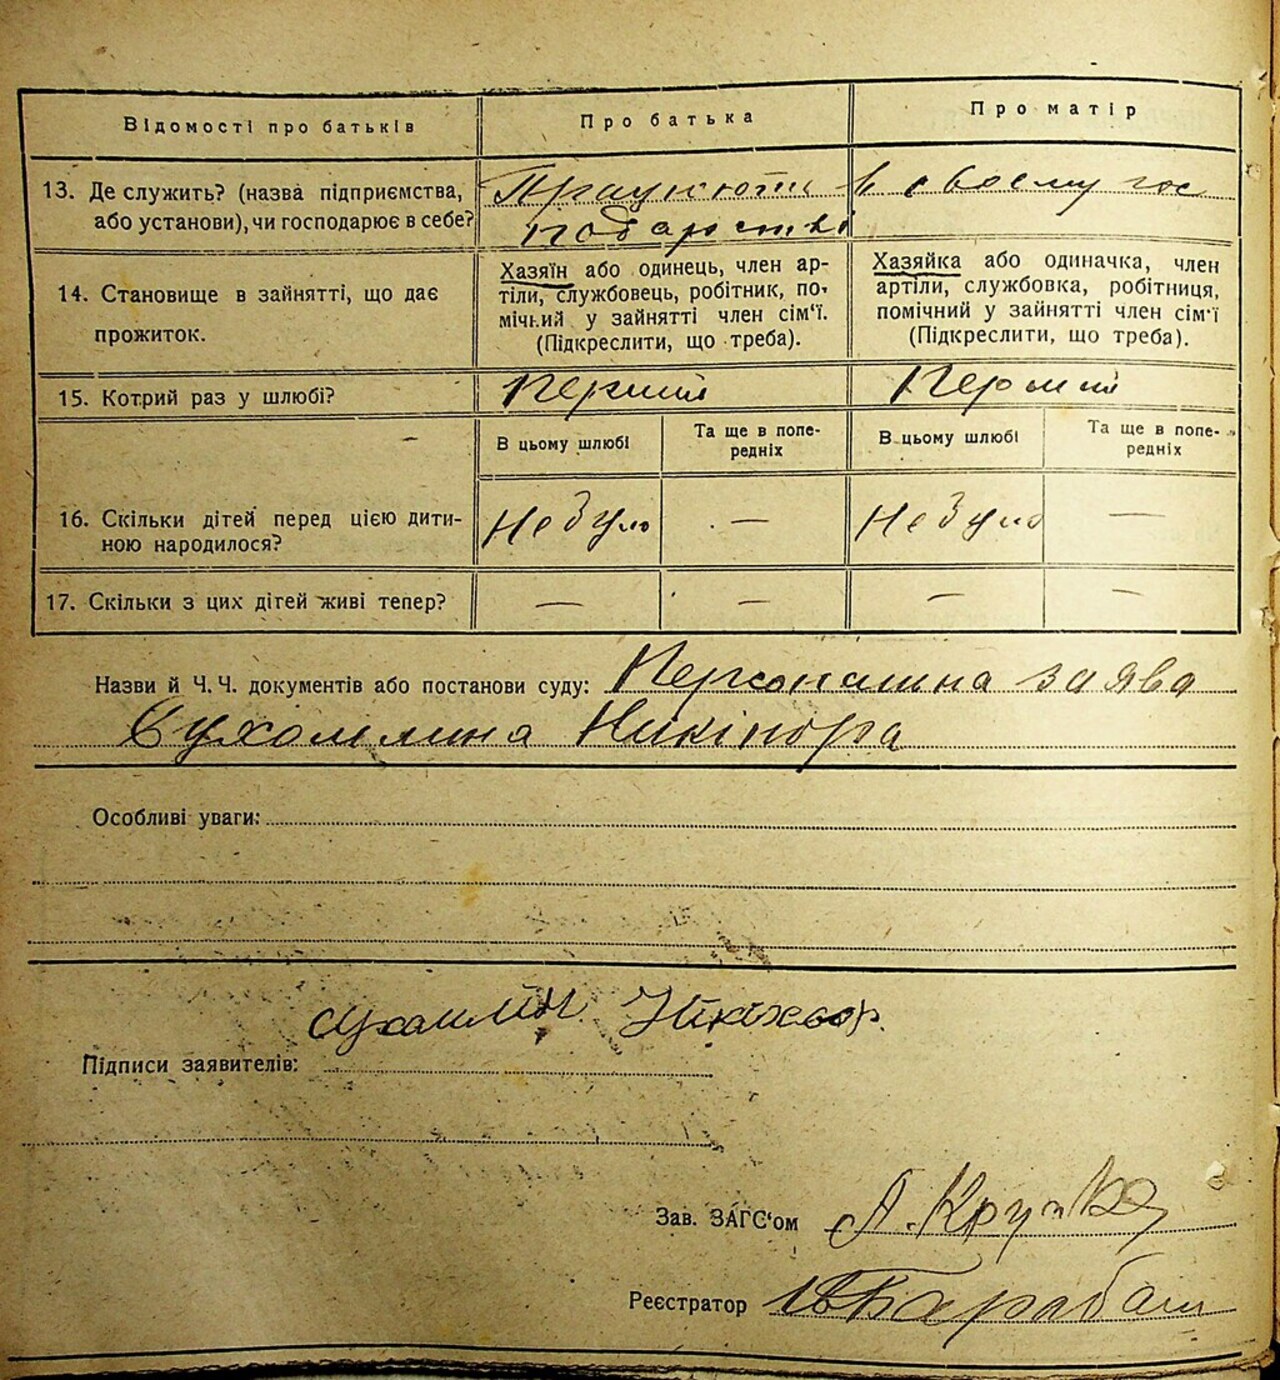 Відомості про батьків Про батька Про матір
13. Де служить? (назва підприємства, або установи), чи господарює в себе?
Працюють в своєму гос
подарстві
14. Становище в зайнятті, що дає
прожиток.
Хазяїн або одинець, член ар-
тіли, службовець, робітник, по-
мічний у зайнятті член сім'ї.
(Підкреслити, що треба).
Хазяйка або одиначка, член
артіли, службовка, робітниця,
помічний у зайнятті член сім'ї
(Підкреслити, що треба).
15. Котрий раз у шлюбі? Перший Перший
В цьому шлюбі Та ще в попе-
редніх
В цьому шлюбі Та ще в попе-
редніх
16. Скільки дітей перед цією дити-
ною народилося?
Не було — Не було —
17. Скільки з цих дітей живі тепер? — — — —
Назви й Ч. Ч. документів або постанови суду: Персональна заява
Сухомлина Никінора
Особливі уваги:
Сухомлин
Підписи заявителів:
Зав. ЗАГС'ом А. Крупка
Реєстратор Барабаш